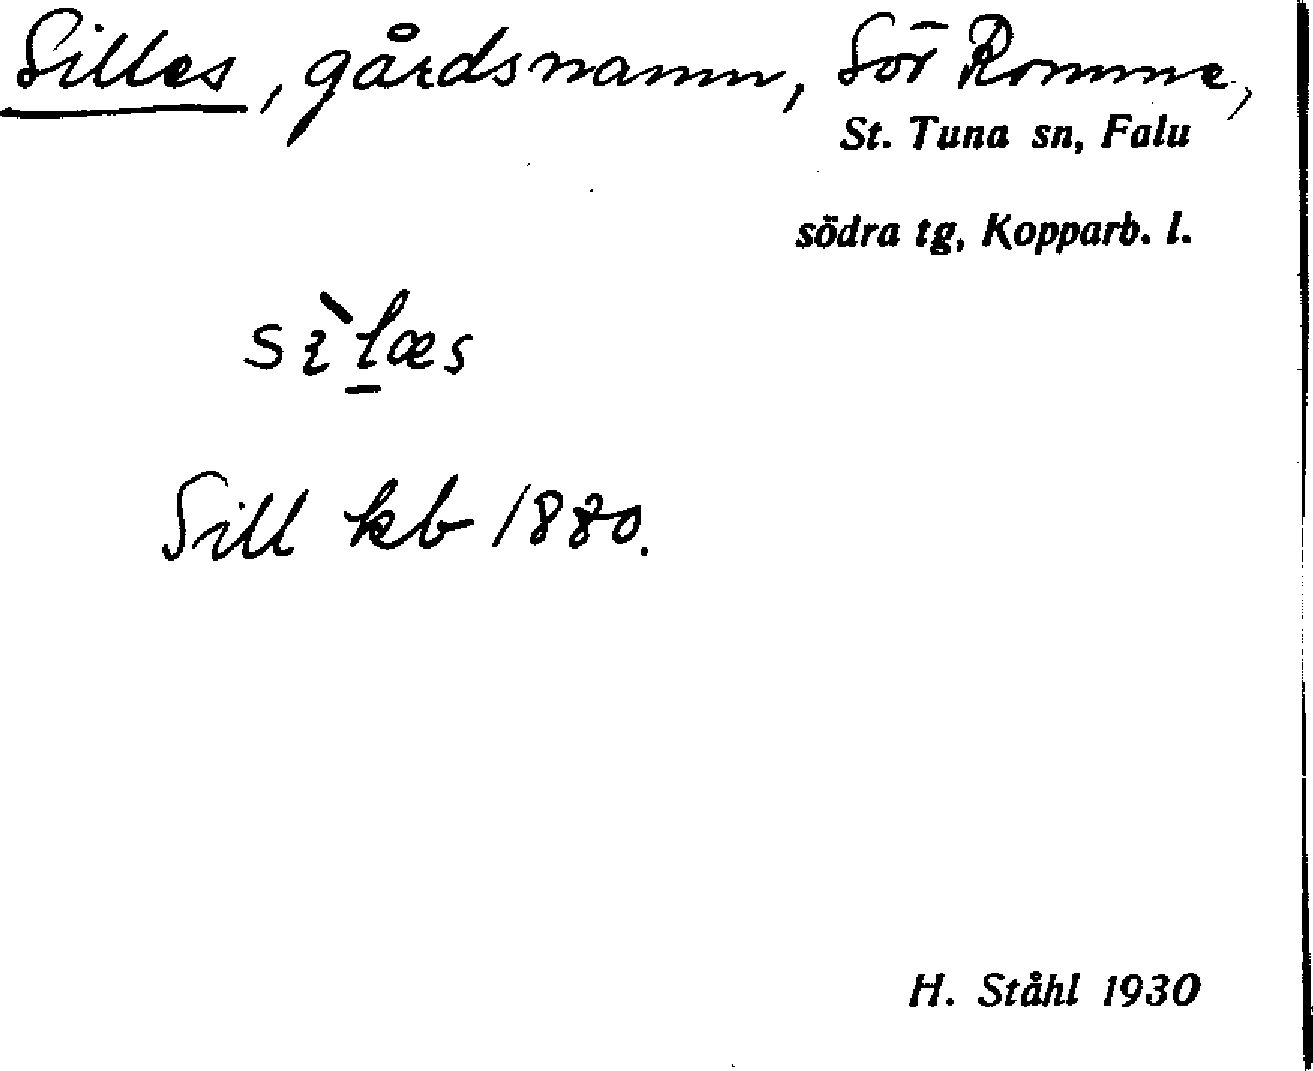 Silles, gårdsnamn, Sör Romme,
St. Tuna sn, Falu
södra tg, Kopparb. l.
sìlæs
Sill kb 1880.
H. Ståhl 1930